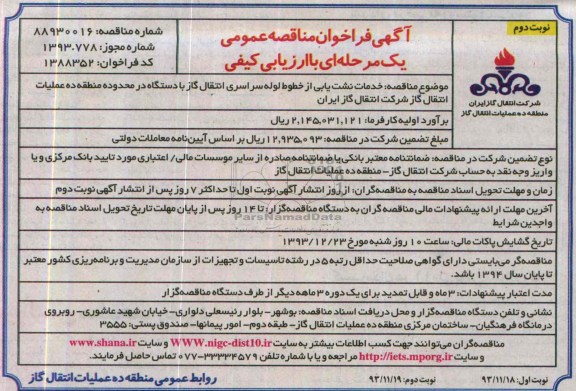 نوبت دوم
آگهی فراخوان مناقصه عمومی
یک مرحله‌ای با ارزیابی کیفی
شماره مناقصه: ۸۸۹۳۰۰۱۶
شماره مجوز: ۱۳۹۳.۷۷۸
کد فراخوان: ۱۳۸۸۳۵۲
شرکت انتقال گاز ایران
منطقه ده عملیات انتقال گاز
موضوع مناقصه: خدمات نشت یابی از خطوط لوله سراسری انتقال گاز با دستگاه در محدوده منطقه ده عملیات
انتقال گاز شرکت انتقال گاز ایران
برآورد اولیه کارفرما: ۲,۱۴۵,۰۳۱,۱۲۱ ریال
مبلغ تضمین شرکت در مناقصه: ۱۲,۹۳۵,۰۹۳ ریال بر اساس آیین‌نامه معاملات دولتی
نوع تضمین شرکت در مناقصه: ضمانتنامه معتبر بانکی یا ضمانتنامه صادره از سایر موسسات مالی/ اعتباری مورد تایید بانک مرکزی و یا
واریز وجه نقد به حساب شرکت انتقال گاز - منطقه ده عملیات انتقال گاز
زمان و مهلت تحویل اسناد مناقصه به مناقصه‌گران: از روز انتشار آگهی نوبت اول تا حداکثر ۷ روز پس از انتشار آگهی نوبت دوم
آخرین مهلت ارائه پیشنهادات مالی مناقصه گران به دستگاه مناقصه‌گزار: تا ۱۴ روز پس از پایان مهلت تاریخ تحویل اسناد مناقصه به
واجدین شرایط
ParsNamadData
تاریخ گشایش پاکات مالی: ساعت ۱۰ روز شنبه مورخ ۱۳۹۳/۱۲/۲۳
مناقصه‌گر می‌بایستی دارای گواهی صلاحیت حداقل رتبه ۵ در رشته تاسیسات و تجهیزات از سازمان مدیریت و برنامه‌ریزی کشور معتبر
تا پایان سال ۱۳۹۴ باشد.
مدت اعتبار پیشنهادات: ۳ ماه و قابل تمدید برای یک دوره ۳ ماهه دیگر از طرف دستگاه مناقصه‌گزار
نشانی و تلفن دستگاه مناقصه‌گزار و محل دریافت اسناد مناقصه: بوشهر - بلوار رئیسعلی دلواری - خیابان شهید عاشوری - روبروی
درمانگاه فرهنگیان - ساختمان مرکزی منطقه ده عملیات انتقال گاز - طبقه دوم - امور پیمانها - صندوق پستی: ۳۵۵۵
مناقصه‌گران می‌توانند جهت کسب اطلاعات بیشتر به سایت WWW.nigc-dist10.ir و سایت www.shana.ir
و سایت http://iets.mporg.ir مراجعه و یا با شماره تلفن ۳۳۳۳۴۵۷۹-۰۷۷ تماس حاصل فرمایند.
نوبت اول: ۹۳/۱۱/۱۸
نوبت دوم: ۹۳/۱۱/۱۹
روابط عمومی منطقه ده عملیات انتقال گاز